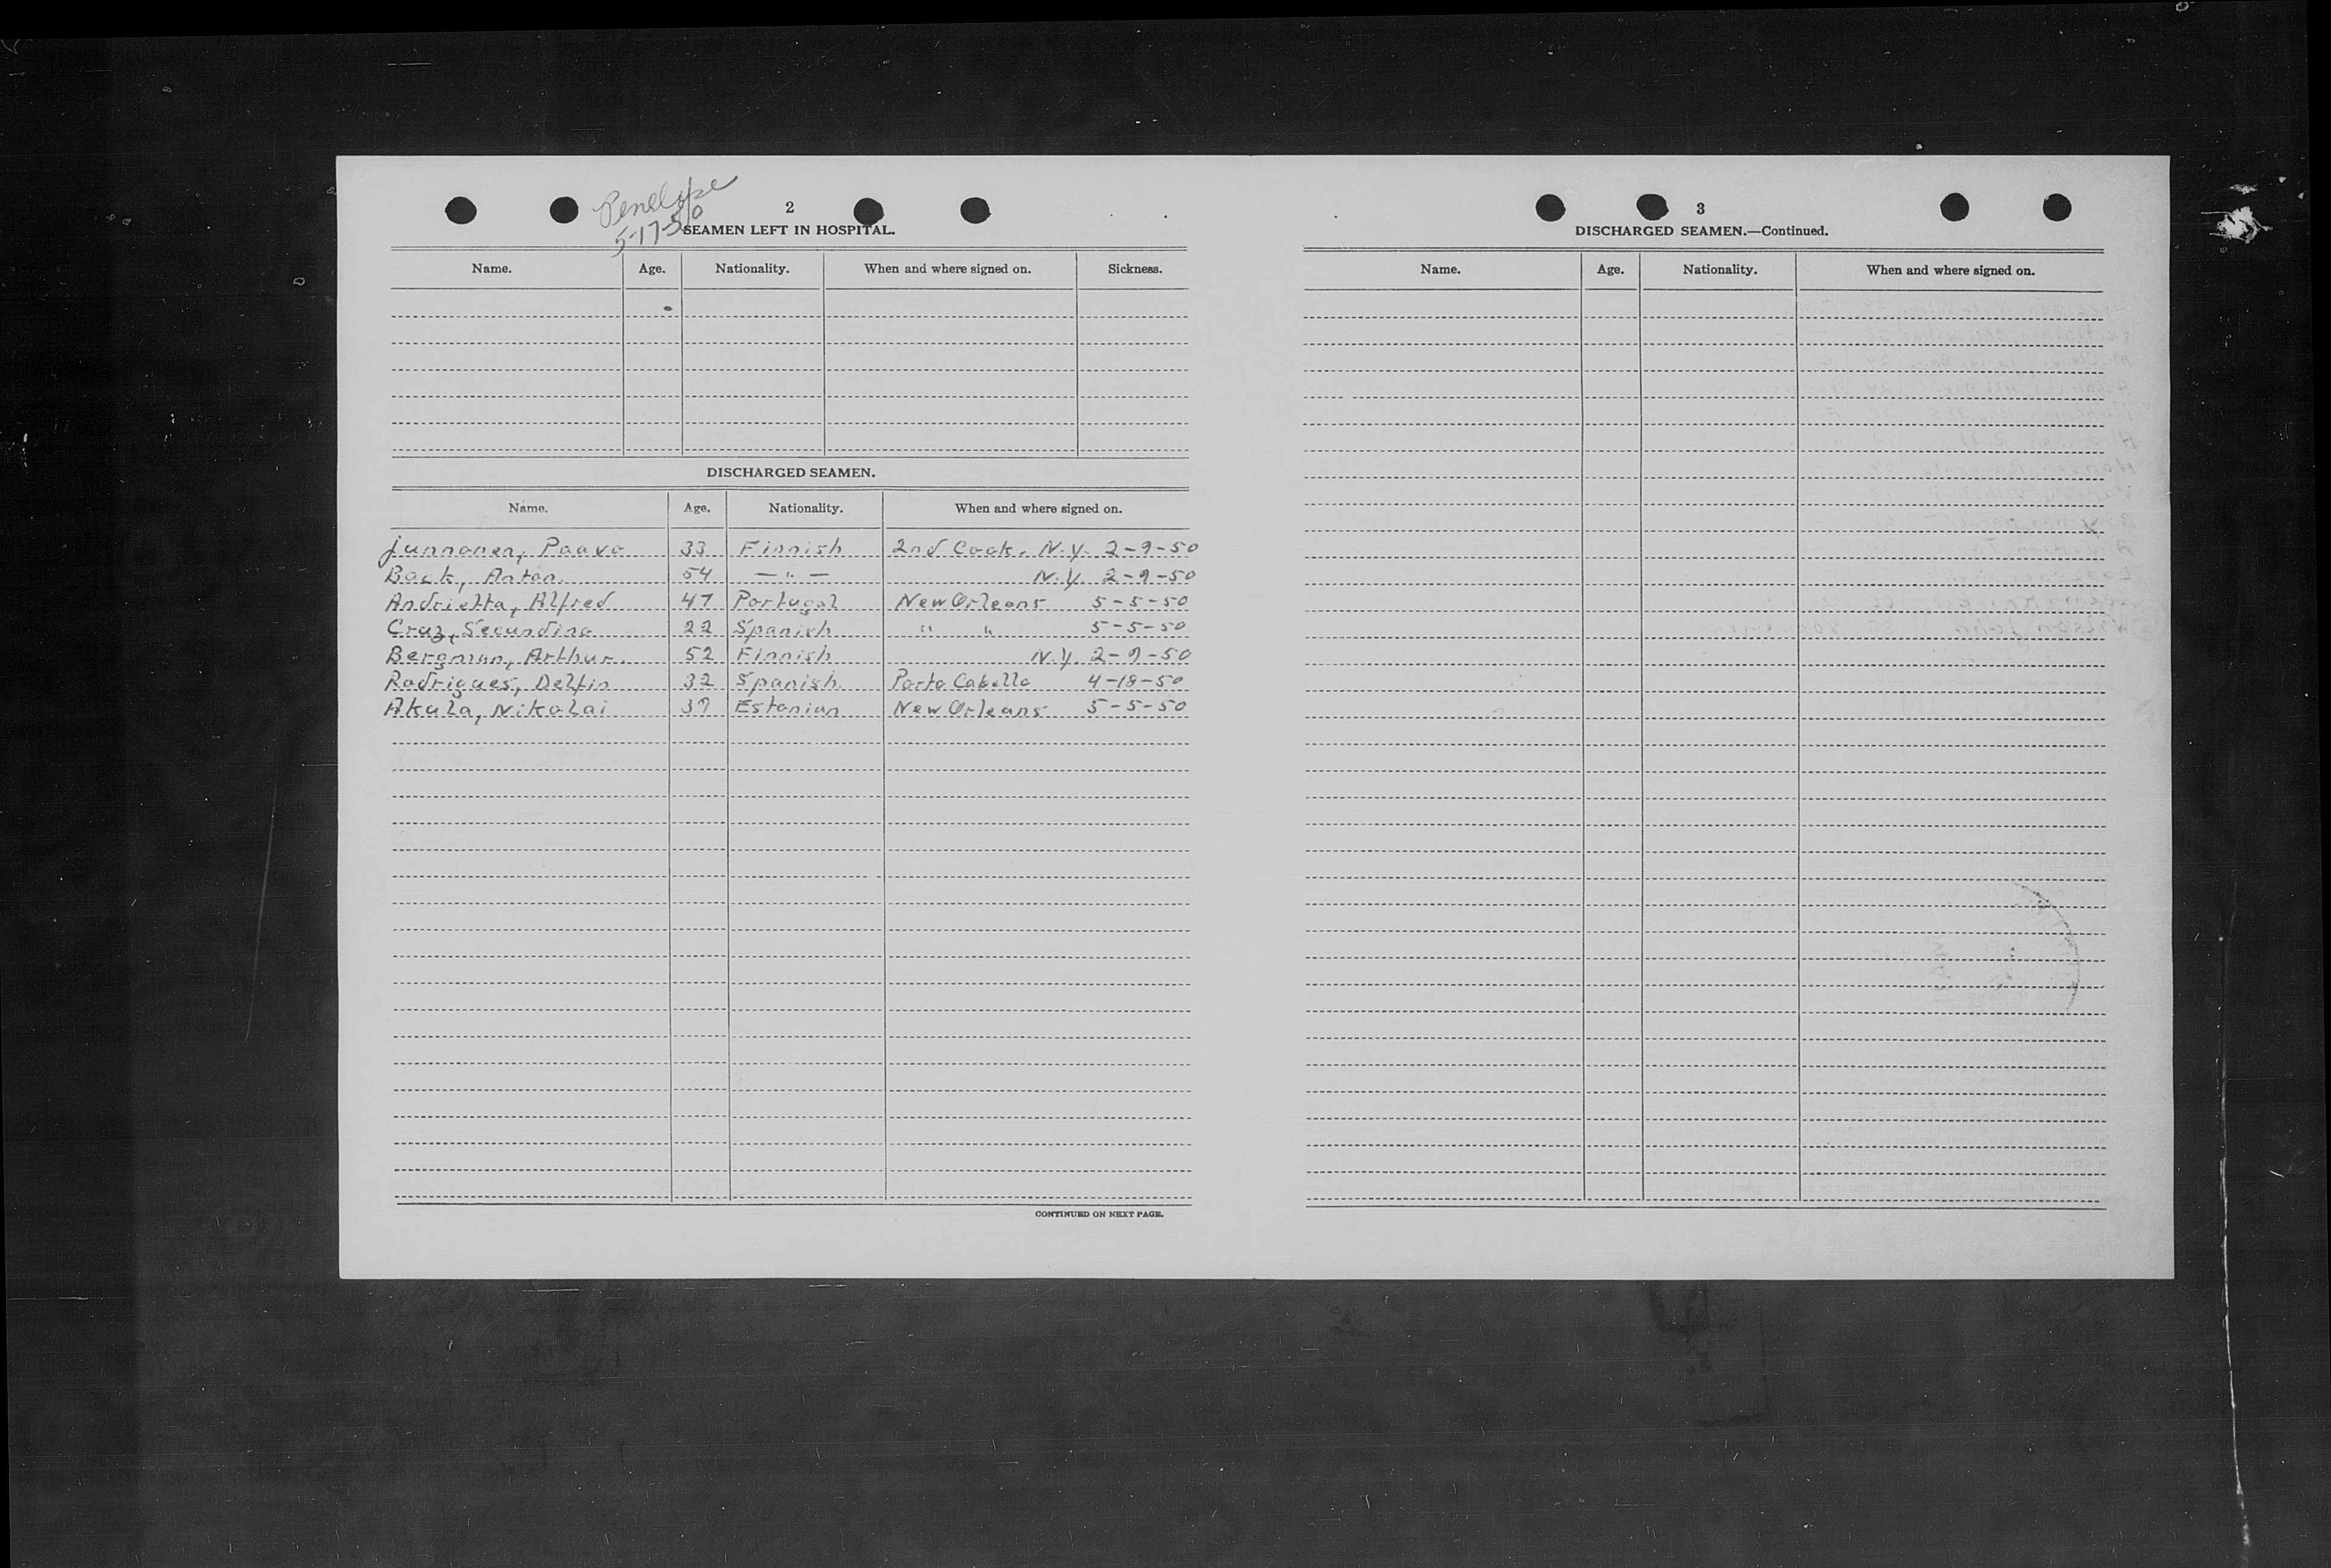 Penelope
5-17-50
2
SEAMEN LEFT IN HOSPITAL.
Name. Age. Nationality. When and where signed on. Sickness.
DISCHARGED SEAMEN.
Name. Age. Nationality. When and where signed on.
Junnonen, Paavo 33 Finnish 2nd Cook. N.Y. 2-9-50
Back, Anton. 54 — " — N.Y. 2-9-50
Andrietta, Alfred 47 Portugal New Orleans 5-5-50
Cruz, Secundino 22 Spanish " " 5-5-50
Bergman, Arthur. 52 Finnish N.Y. 2-9-50
Rodrigues, Delfin 32 Spanish. Porto Cabello 4-18-50
Akula, Nikolai 39 Estonian New Orleans 5-5-50
CONTINUED ON NEXT PAGE.
3
DISCHARGED SEAMEN.—Continued.
Name. Age. Nationality. When and where signed on.